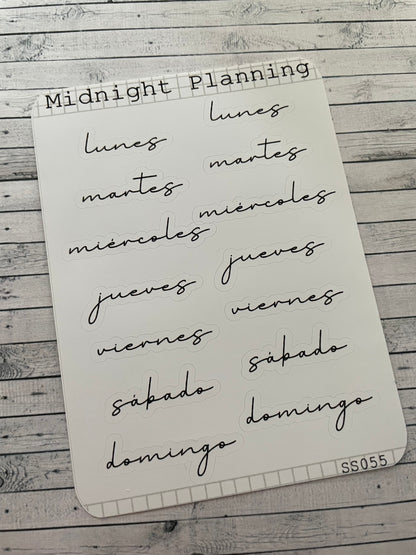 Midnight Planning
lunes lunes
martes martes
miércoles miércoles
jueves jueves
viernes viernes
sábado sábado
domingo domingo
SS055